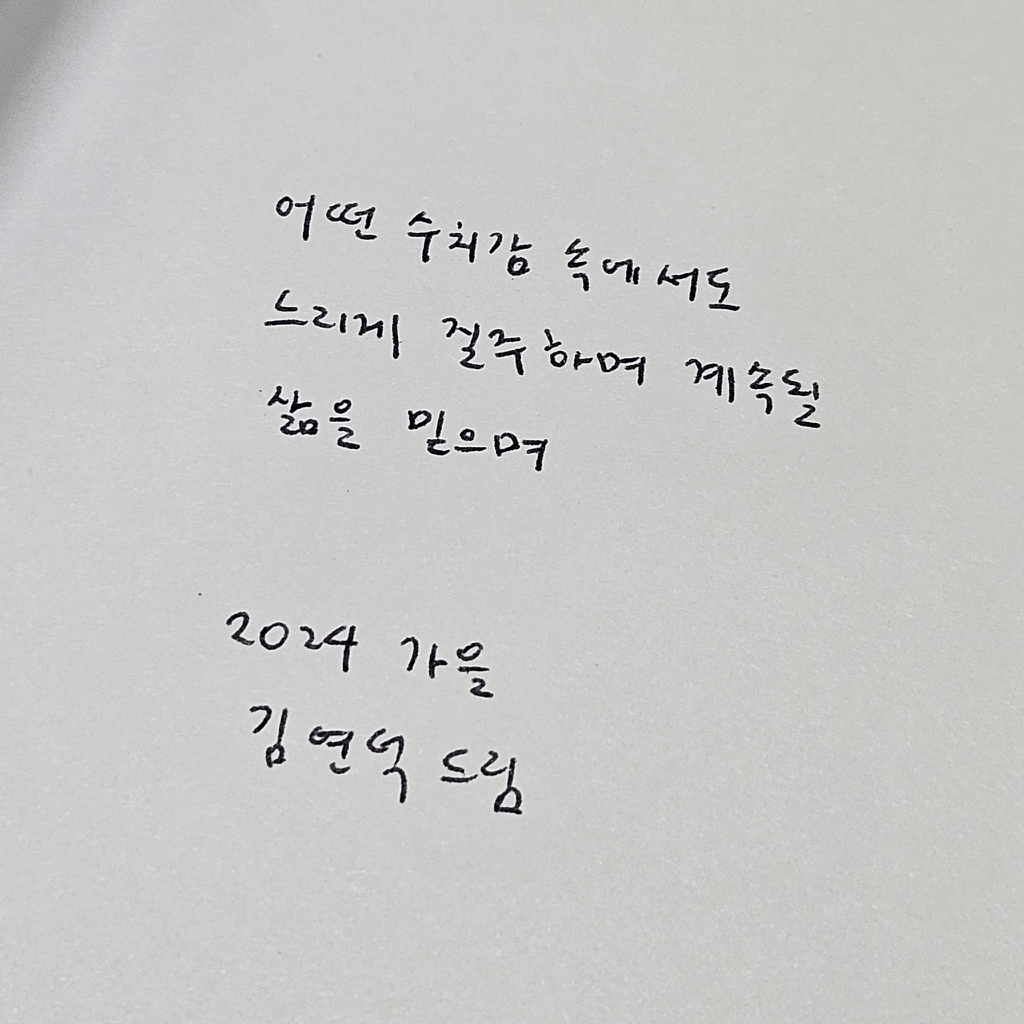 어떤 수치감 속에서도
느리게 질주하며 계속될
삶을 믿으며
2024 가을
김연덕 드림